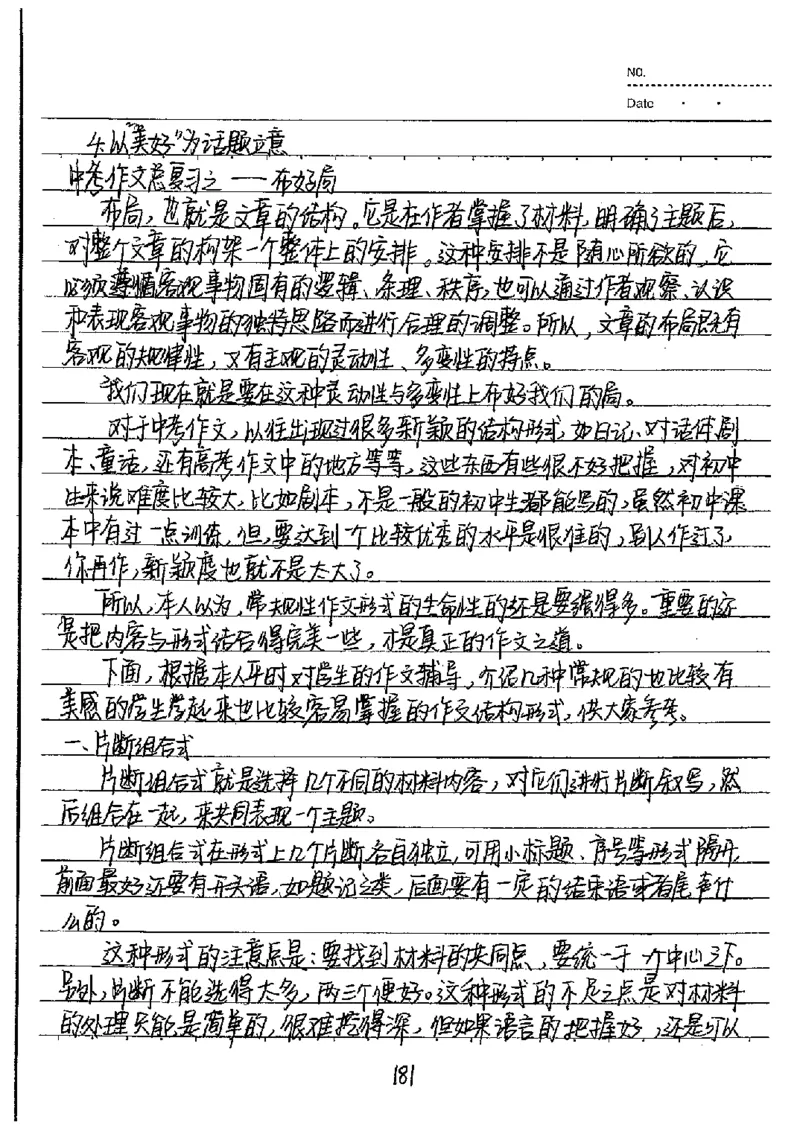 NO.
Date
4.以“美好”为话题立意
中考作文总复习之——布好局
布局,也就是文章的结构。它是在作者掌握了材料,明确了主题后,
对整个文章的构架一个整体上的安排。这种安排不是随心所欲的,它
必须遵循客观事物固有的逻辑、条理、秩序,也可以通过作者观察、认识
和表现客观事物的独特思路而进行合理的调整。所以,文章的布局既有
客观的规律性,又有主观的灵动性、多变性的特点。
我们现在就是要在这种灵动性与多变性上布好我们的局。
对于中考作文,以往出现过很多新颖的结构形式,如日记、对话体剧
本、童话,还有高考作文中的地方等等,这些东西有些很不好把握,对初中
生来说难度比较大,比如剧本,不是一般的初中生都能写的,虽然初中课
本中有过一点训练,但,要达到一个比较优秀的水平是很难的,别人作过了,
你再作,新颖度也就不是太大了。
所以,本人以为,常规性作文形式的生命性的还是要强得多。重要的还
是把内容与形式结合得完美一些,才是真正的作文之道。
下面,根据本人平时对学生的作文辅导,介绍几种常规的也比较有
美感的学生学起来也比较容易掌握的作文结构形式,供大家参考。
一、片断组合式
片断组合式就是选择几个不同的材料内容,对它们进行片断叙写,然
后组合在一起,来共同表现一个主题。
片断组合式在形式上几个片断各自独立,可用小标题、序号等形式隔开,
前面最好还要有开头语,如题记之类,后面要有一定的结束语或者尾声什
么的。
这种形式的注意点是:要找到材料的共同点,要统一于一个中心之下。
另外,片断不能选得太多,两三个便好。这种形式的不足之点是对材料
的处理只能是简单的,很难挖得深,但如果语言的把握好,还是可以
181